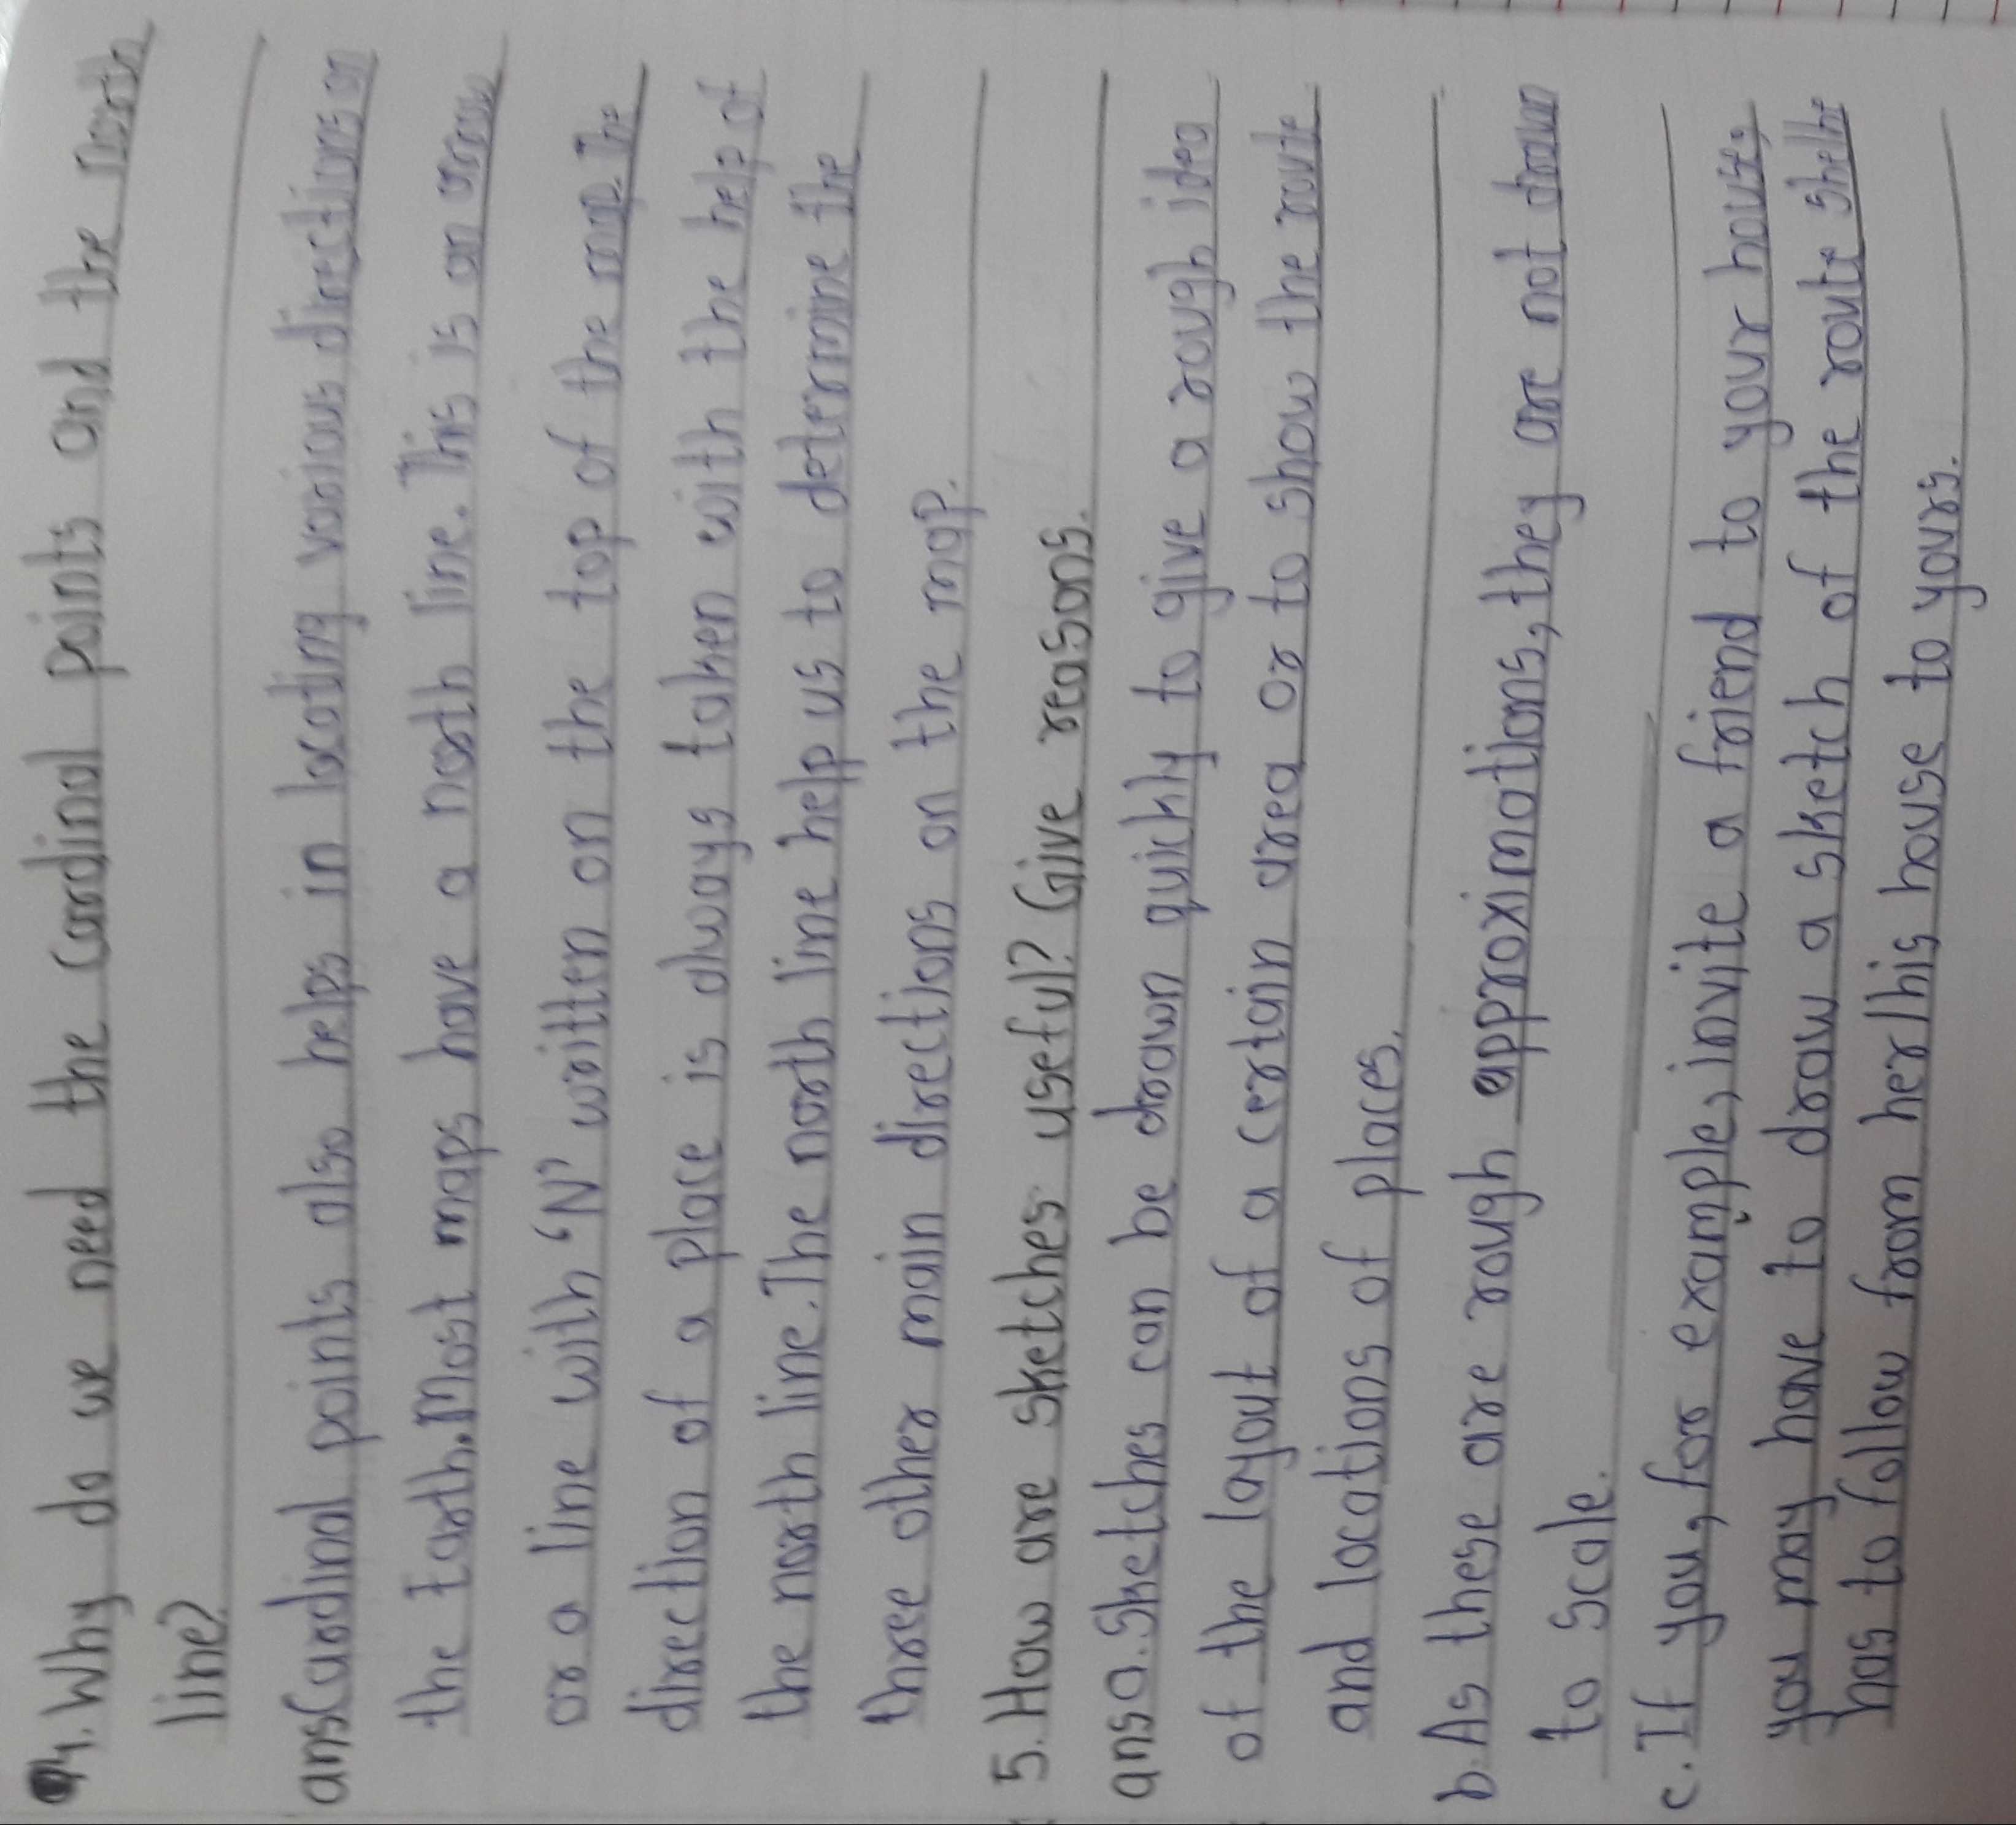 4. Why do we need the cardinal points and the north
line?
ans Cardinal points also helps in locating various directions on
the Earth. Most maps have a north line. This is an arrow
or a line with "N" written on the top of the map. The
direction of a place is always taken with the help of
the north line. The north line help us to determine the
three other main directions on the map.
5. How are sketches useful? Give reasons.
ans a. Sketches can be drawn quickly to give a rough idea
of the layout of a certain area or to show the route
and locations of places.
b. As these are rough approximations, they are not drawn
to scale.
c. If you, for example, invite a friend to your house,
you may have to draw a sketch of the route she/he
has to follow from her/his house to yours.